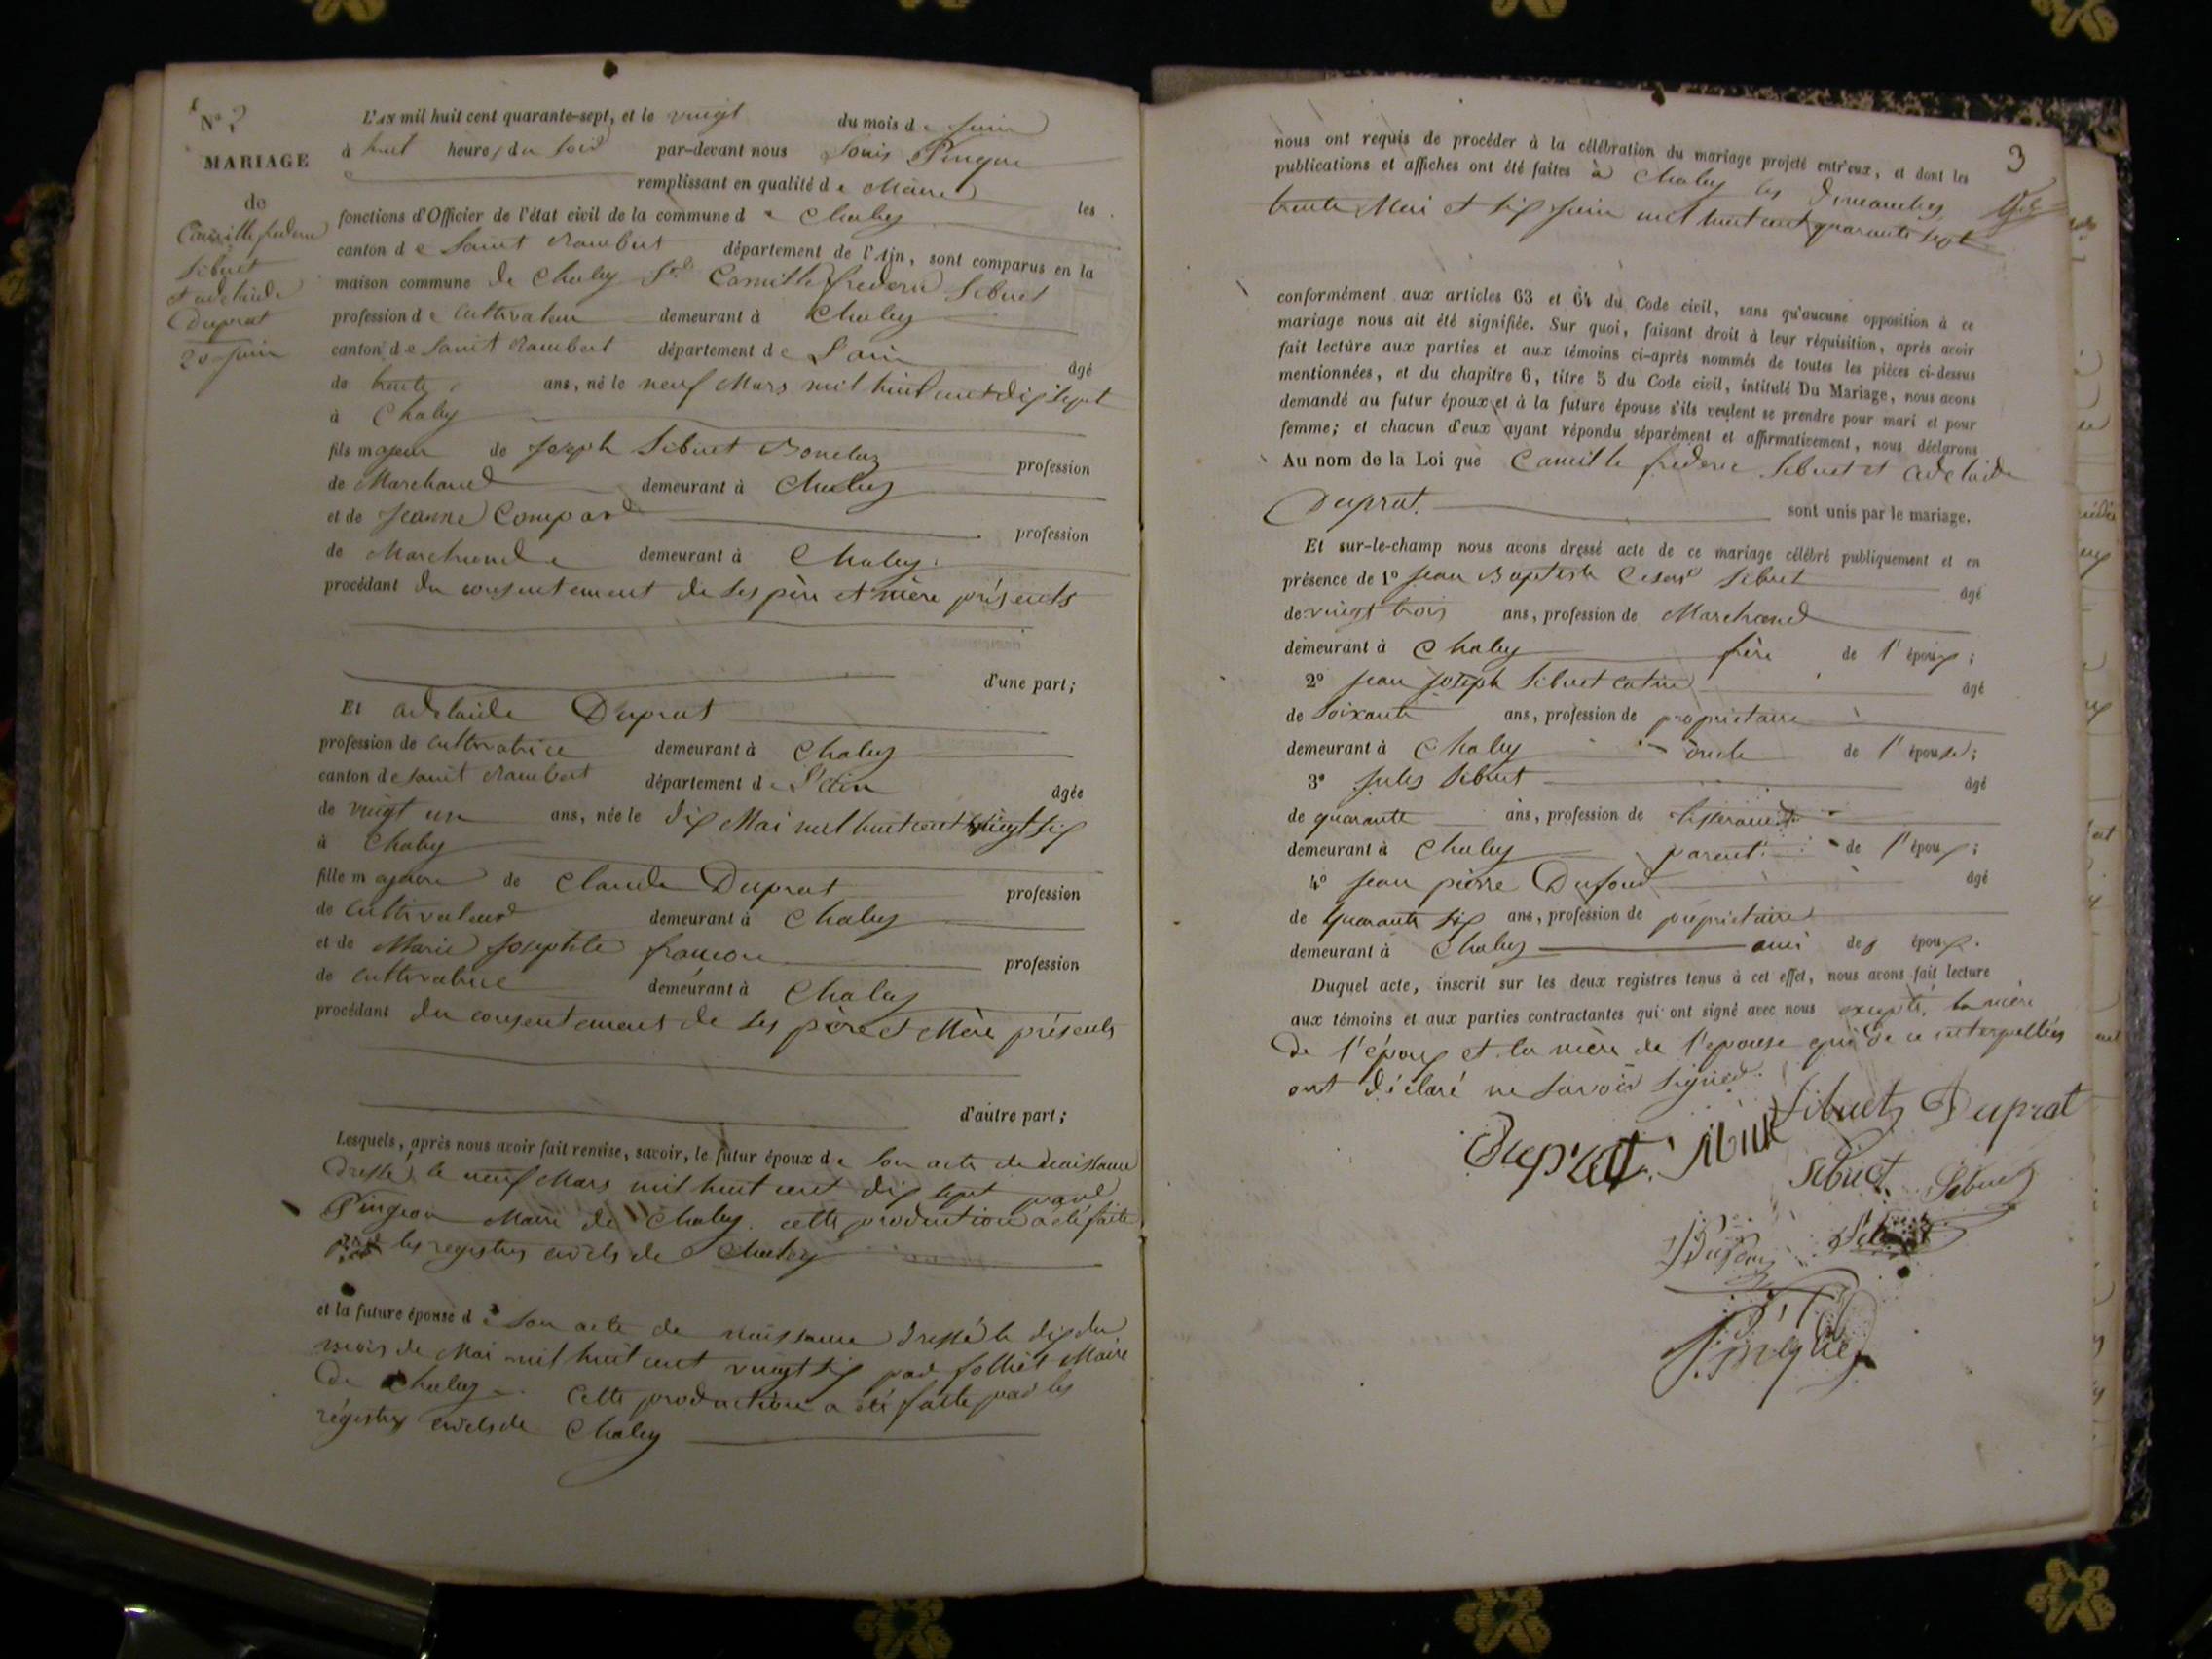 N° 2
MARIAGE
de
Camille frederic
Sibuet
et adelaide
Duprat
20 juin
L'AN mil huit cent quarante-sept, et le vingt du mois de juin
à huit heures du soir par-devant nous Louis Pingeon
remplissant en qualité de Maire les
fonctions d'Officier de l'état civil de la commune de Chaley
canton de Saint Rambert département de l'Ain, sont comparus en la
maison commune de Chaley Camille frederic Sibuet
profession de Cultivateur demeurant à Chaley
canton de Saint Rambert département de L'ain âgé
de trente ans, né le neuf Mars mil huit cent dix sept
à Chaley
fils majeur de Joseph Sibuet profession
de Marchand demeurant à Chaley
et de Jeanne Compard profession
de Marchande demeurant à Chaley
procédant du consentement de ses père et mère présents
d'une part;
Et adelaide Duprat
profession de cultivatrice demeurant à Chaley
canton de saint Rambert département de L'ain âgée
de vingt un ans, née le dix Mai mil huit cent vingt six
à Chaley
fille majeure de Claude Duprat profession
de Cultivateur demeurant à Chaley
et de Marie Josephte françon profession
de cultivatrice demeurant à Chaley
procédant du consentement de ses père et Mère présents
d'autre part;
Lesquels, après nous avoir fait remise, savoir, le futur époux de son acte de naissance
dressé le neuf Mars mil huit cent dix sept par
Pingeon Maire de Chaley. cette production a été faite
par les registres civils de Chaley
et la future épouse de son acte de naissance dressé le dix du
mois de Mai mil huit cent vingt six par folliet Maire
de Chaley. Cette production a été faite par les
régistres civils de Chaley
3
nous ont requis de procéder à la célébration du mariage projeté entr'eux, et dont les
publications et affiches ont été faites à Chaley les Dimanches
trente Mai et six juin mil huit cent quarante sept
conformément aux articles 63 et 64 du Code civil, sans qu'aucune opposition à ce
mariage nous ait été signifiée. Sur quoi, faisant droit à leur réquisition, après avoir
fait lecture aux parties et aux témoins ci-après nommés de toutes les pièces ci-dessus
mentionnées, et du chapitre 6, titre 5 du Code civil, intitulé Du Mariage, nous avons
demandé au futur époux et à la future épouse s'ils veulent se prendre pour mari et pour
femme; et chacun d'eux ayant répondu séparément et affirmativement, nous déclarons
Au nom de la Loi que Camille frederic Sibuet et adelaide
Duprat. sont unis par le mariage.
Et sur-le-champ nous avons dressé acte de ce mariage célébré publiquement et en
présence de 1° Jean Baptiste Cesar Sibuet âgé
de vingt trois ans, profession de Marchand
demeurant à Chaley frère de l'époux;
2° Jean Joseph Sibuet âgé
de soixante ans, profession de propriétaire
demeurant à Chaley oncle de l'épouse;
3° Jules Sibuet âgé
de quarante ans, profession de tisserand
demeurant à Chaley parent de l'époux;
4° Jean pierre Dufour âgé
de quarante six ans, profession de propriétaire
demeurant à Chaley ami des époux.
Duquel acte, inscrit sur les deux registres tenus à cet effet, nous avons fait lecture
aux témoins et aux parties contractantes qui ont signé avec nous excepté la mère
de l'époux et la mère de l'epouse qui de ce interpellées
ont déclaré ne savoir signer.
Sibuet Duprat
Duprat Sibuet
Sibuet Sibuet
Dufour Sibuet
Pingeon